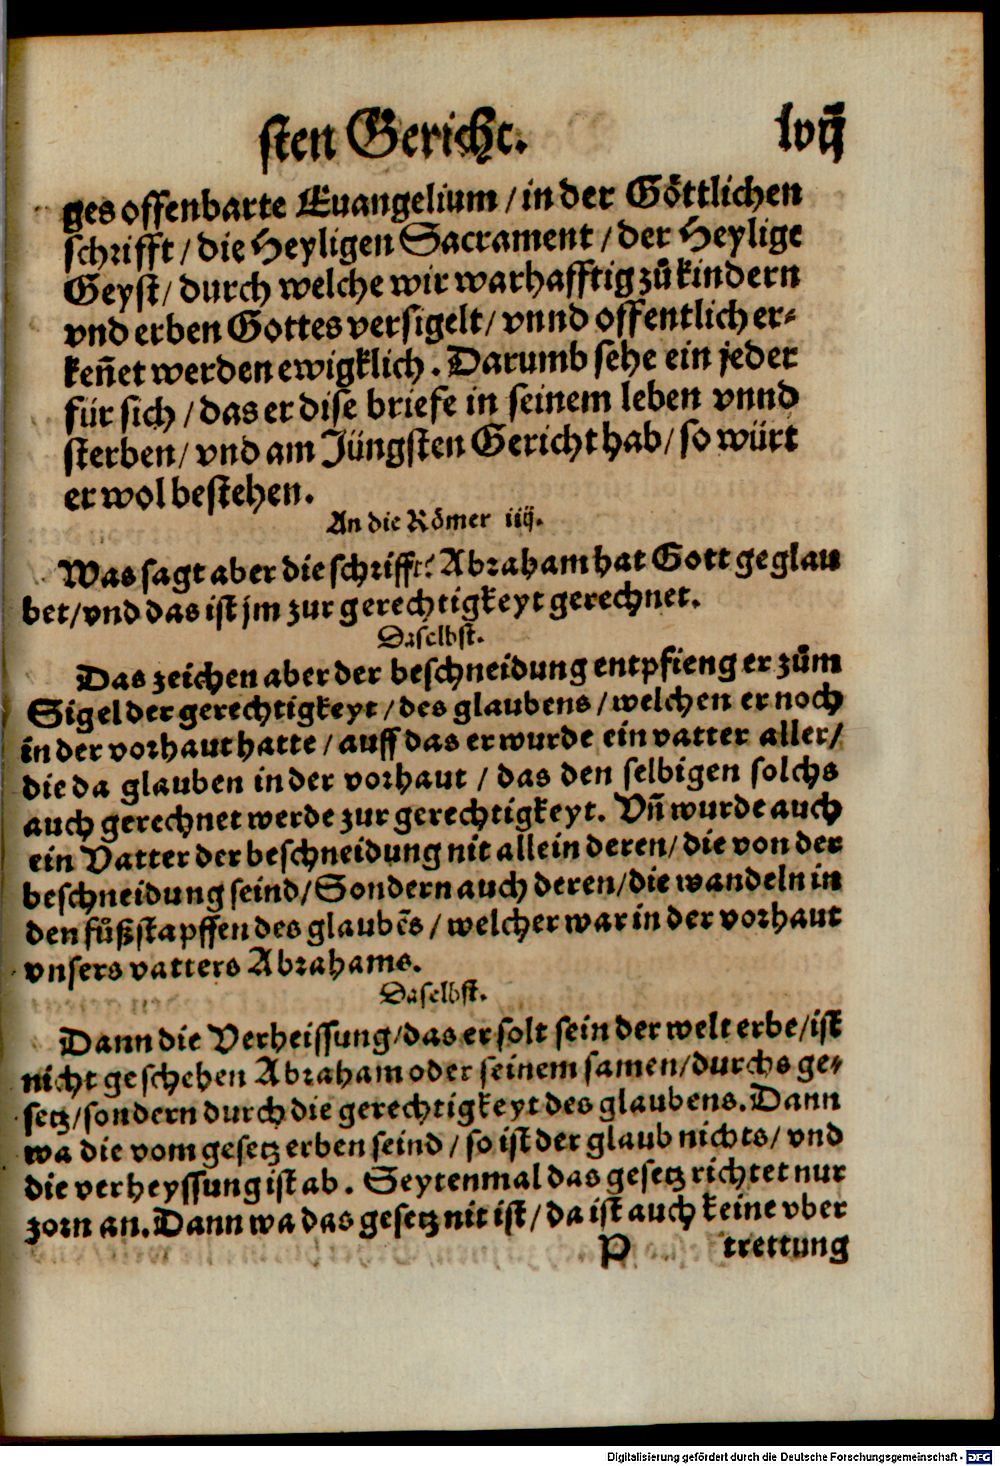 sten Gericht. lvij
ges offenbarte Euangelium / in der Göttlichen
schrifft / die Heyligen Sacrament / der Heylige
Geyst / durch welche wir warhafftig zů kindern
vnd erben Gottes versigelt / vnnd offentlich er-
keñet werden ewigklich. Darumb sehe ein jeder
für sich / das er dise briefe in seinem leben vnnd
sterben / vnd am Jüngsten Gericht hab / so würt
er wol bestehen.
An die Römer iiij.
Was sagt aber die schrifft? Abraham hat Gott geglau
bet / vnd das ist jm zur gerechtigkeyt gerechnet.
Daselbst.
Das zeichen aber der beschneidung entpfieng er zům
Sigel der gerechtigkeyt / des glaubens / welchen er noch
in der vorhaut hatte / auff das er wurde ein vatter aller /
die da glauben in der vorhaut / das den selbigen solchs
auch gerechnet werde zur gerechtigkeyt. Vñ wurde auch
ein Vatter der beschneidung nit allein deren / die von der
beschneidung seind / Sondern auch deren / die wandeln in
den fůßstapffen des glaubēs / welcher war in der vorhaut
vnsers vatters Abrahams.
Daselbst.
Dann die Verheissung / das er solt sein der welt erbe / ist
nicht geschehen Abraham oder seinem samen / durchs ge-
setz / sondern durch die gerechtigkeyt des glaubens. Dann
wa die vom gesetz erben seind / so ist der glaub nichts / vnd
die verheyssung ist ab. Seytenmal das gesetz richtet nur
zorn an. Dann wa das gesetz nit ist / da ist auch keine vber
P trettung
Digitalisierung gefördert durch die Deutsche Forschungsgemeinschaft - DFG